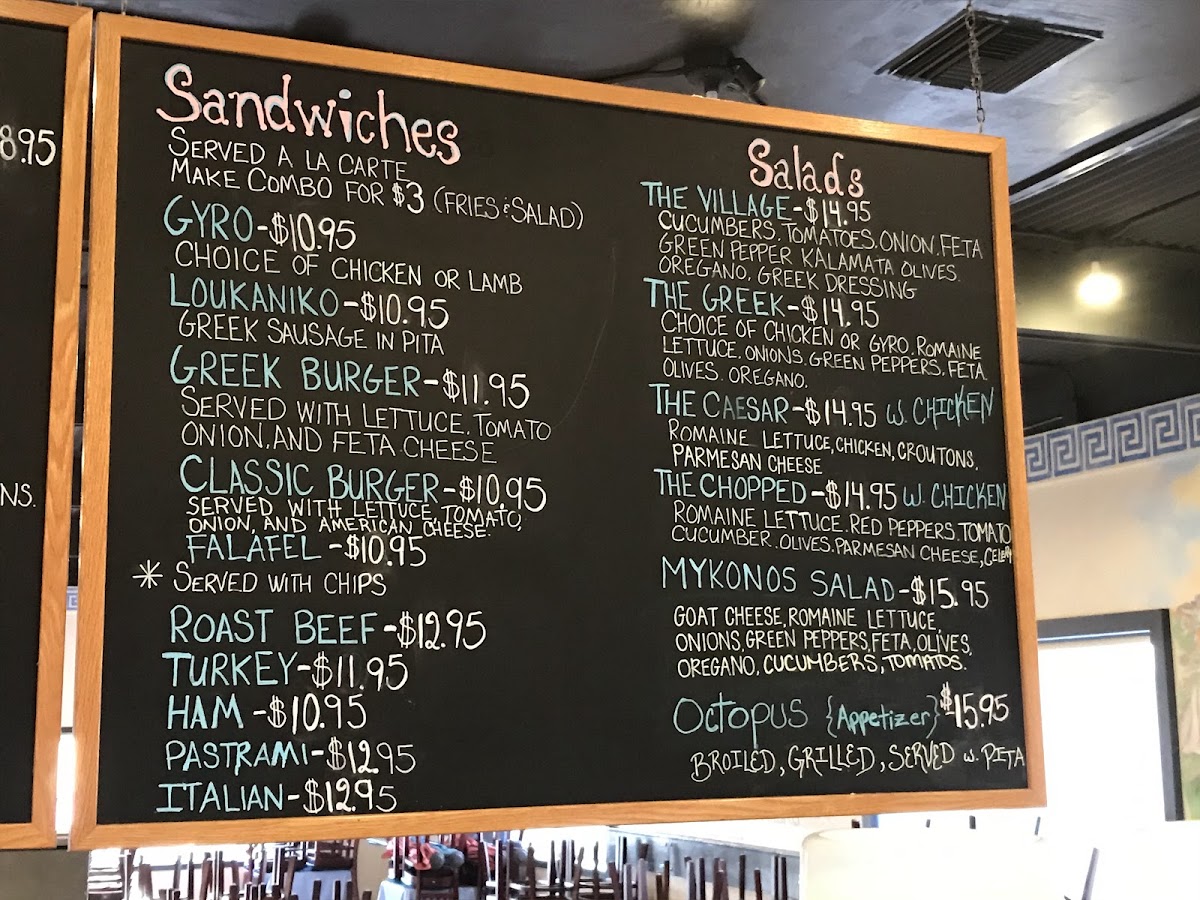 8.95
NS.
Sandwiches
SERVED A LA CARTE
MAKE COMBO FOR $3 (FRIES & SALAD)
GYRO-$10.95
CHOICE OF CHICKEN OR LAMB
LOUKANIKO-$10.95
GREEK SAUSAGE IN PITA
GREEK BURGER-$11.95
SERVED WITH LETTUCE, TOMATO
ONION, AND FETA CHEESE
CLASSIC BURGER-$10.95
SERVED WITH LETTUCE, TOMATO,
ONION, AND AMERICAN CHEESE.
FALAFEL-$10.95
* SERVED WITH CHIPS
ROAST BEEF-$12.95
TURKEY-$11.95
HAM-$10.95
PASTRAMI-$12.95
ITALIAN-$12.95
Salads
THE VILLAGE-$14.95
CUCUMBERS. TOMATOES. ONION. FETA
GREEN PEPPER KALAMATA OLIVES.
OREGANO. GREEK DRESSING
THE GREEK-$14.95
CHOICE OF CHICKEN OR GYRO. ROMAINE
LETTUCE. ONIONS. GREEN PEPPERS. FETA.
OLIVES. OREGANO.
THE CAESAR-$14.95 W. CHICKEN
ROMAINE LETTUCE, CHICKEN, CROUTONS,
PARMESAN CHEESE
THE CHOPPED-$14.95 W. CHICKEN
ROMAINE LETTUCE. RED PEPPERS. TOMATO
CUCUMBER. OLIVES. PARMESAN CHEESE, CELERY
MYKONOS SALAD-$15.95
GOAT CHEESE, ROMAINE LETTUCE,
ONIONS, GREEN PEPPERS, FETA, OLIVES,
OREGANO, CUCUMBERS, TOMATOS.
OCTOPUS {Appetizer} $15.95
BROILED, GRILLED, SERVED W. PITA